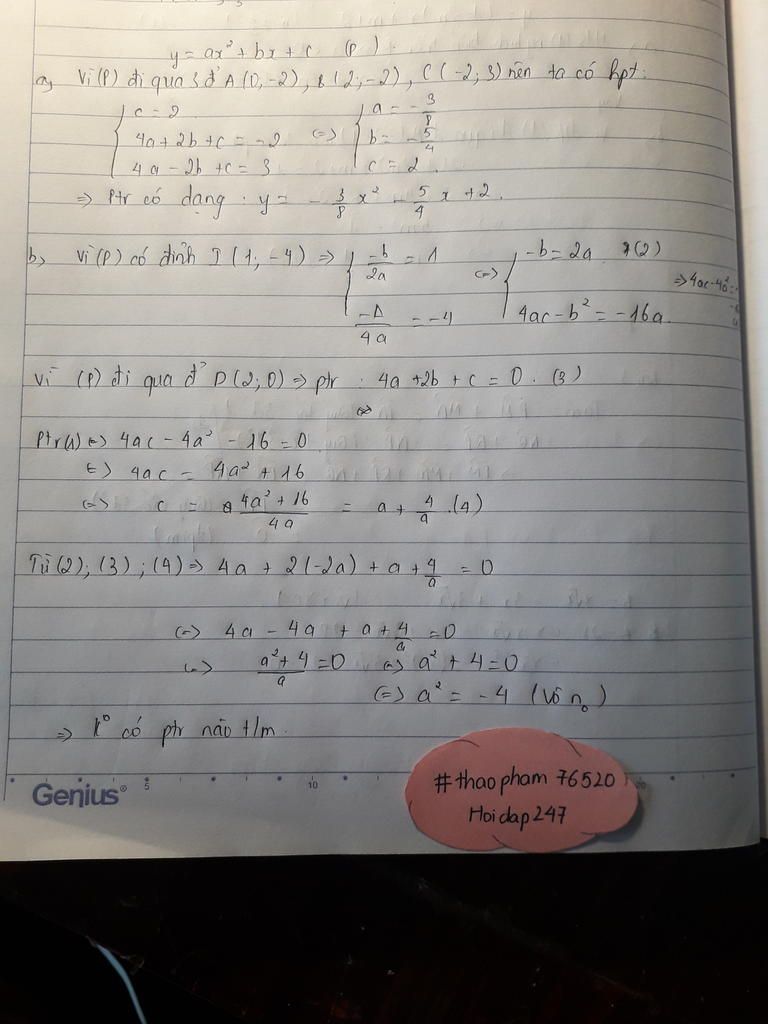 y = ax² + bx + c (P).
a, Vì (P) đi qua 3 đ' A(0,-2), B(2;-2), C(-2;3) nên ta có hpt:
{ c = 2 { a = -3/8
{ 4a + 2b + c = -2 <=> { b = -5/4
{ 4a - 2b + c = 3 { c = 2.
=> Ptr có dạng : y = -3/8 x² - 5/4 x + 2.
b, Vì (P) có đỉnh I(1;-4) => { -b/2a = 1 <=> { -b = 2a (2)
{ -Δ/4a = -4 { 4ac - b² = -16a. => 4ac-4a² =
Vì (P) đi qua đ' D(2;0) => ptr : 4a + 2b + c = 0. (3)
<=>
Ptr(1) <=> 4ac - 4a² - 16 = 0
<=> 4ac = 4a² + 16
<=> c = (4a² + 16)/4a = a + 4/a .(4)
Từ (2); (3); (4) => 4a + 2(-2a) + a + 4/a = 0
<=> 4a - 4a + a + 4/a = 0
<=> (a² + 4)/a = 0 <=> a² + 4 = 0
<=> a² = -4 (Vô n₀)
=> k° có ptr nào t/m.
Genius® 5 10 20
#thaopham 76520
Hoidap247